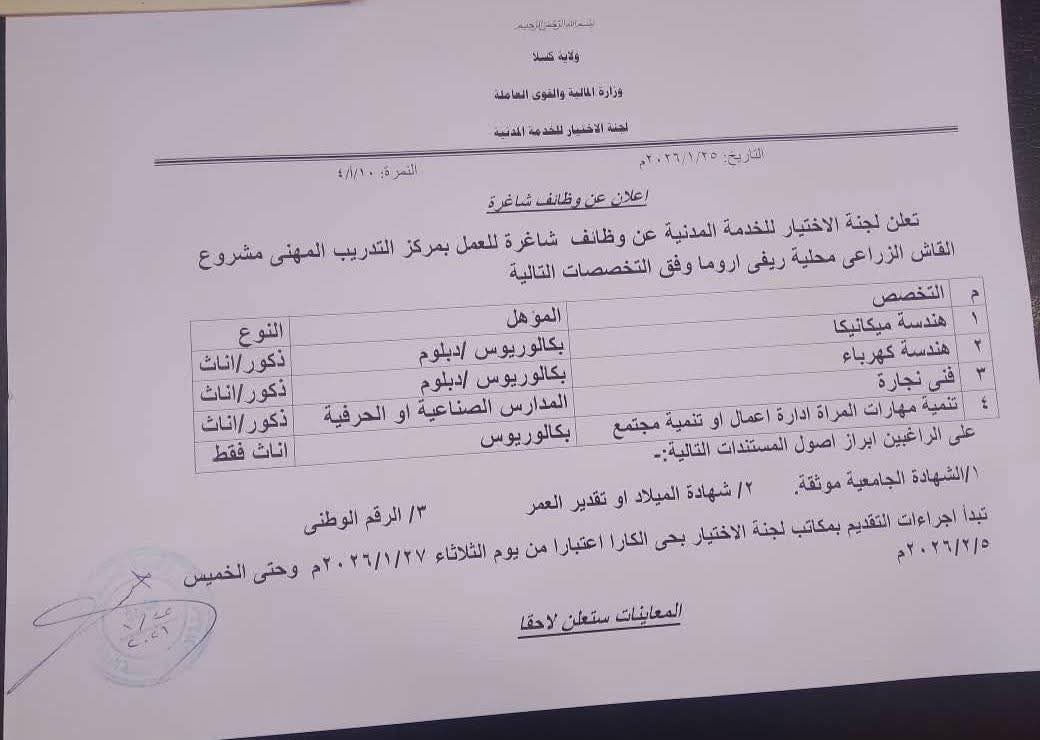 بسم الله الرحمن الرحيم
ولاية كسلا
وزارة المالية والقوى العاملة
لجنة الاختيار للخدمة المدنية
التاريخ: ٢٠٢٦/١/٢٥م النمرة: ١٠/أ/٤
اعلان عن وظائف شاغرة
تعلن لجنة الاختيار للخدمة المدنية عن وظائف شاغرة للعمل بمركز التدريب المهنى مشروع
القاش الزراعى محلية ريفى اروما وفق التخصصات التالية
م التخصص المؤهل النوع
١ هندسة ميكانيكا بكالوريوس /دبلوم ذكور/اناث
٢ هندسة كهرباء بكالوريوس /دبلوم ذكور/اناث
٣ فنى نجارة المدارس الصناعية او الحرفية ذكور/اناث
٤ تنمية مهارات المراة ادارة اعمال او تنمية مجتمع بكالوريوس اناث فقط
على الراغبين ابراز اصول المستندات التالية:-
١/الشهادة الجامعية موثقة. ٢/ شهادة الميلاد او تقدير العمر ٣/ الرقم الوطنى
تبدأ اجراءات التقديم بمكاتب لجنة الاختيار بحى الكارا اعتبارا من يوم الثلاثاء ٢٠٢٦/١/٢٧م وحتى الخميس
٢٠٢٦/٢/٥م
المعاينات ستعلن لاحقا